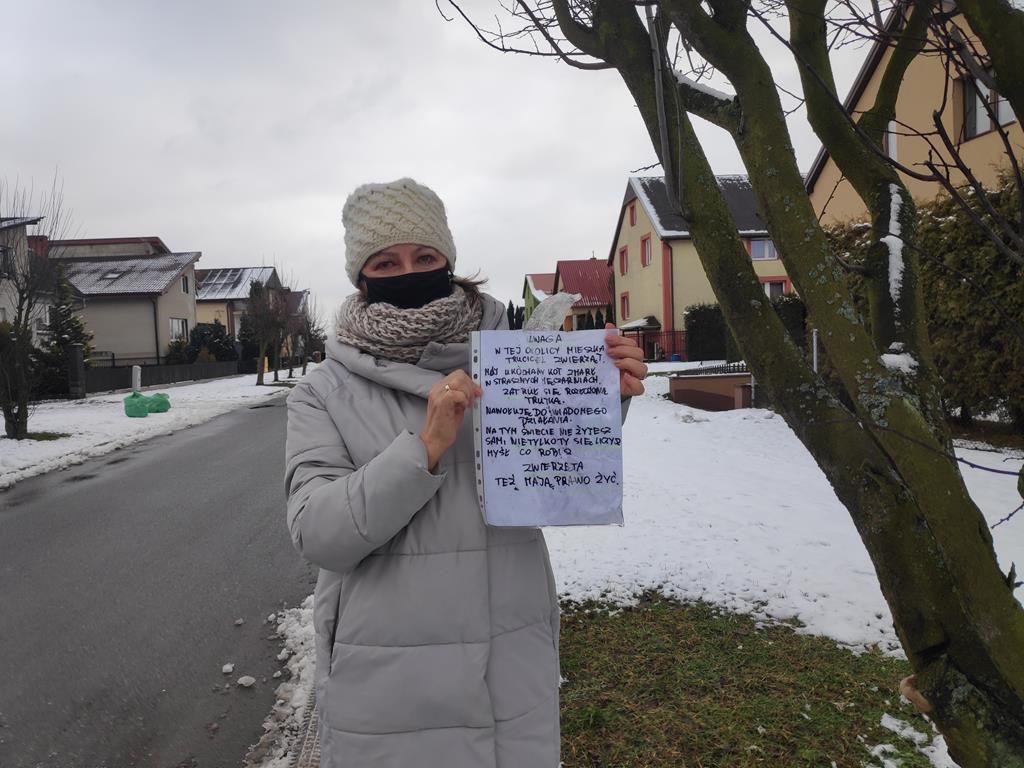 UWAGA
W TEJ OKOLICY MIESZKA
TRUCICIEL ZWIERZĄT.
MÓJ UKOCHANY KOT ZMARŁ
W STRASZNYCH MĘCZARNIACH,
ZATRUŁ SIĘ ROZŁOŻONĄ
TRUTKĄ.
NAWOŁUJĘ DO WIADOMEGO
DZIAŁANIA.
NA TYM ŚWIECIE NIE ŻYJESZ
SAM, NIE TYLKO TY SIĘ LICZYSZ
MYŚL CO ROBISZ
ZWIERZĘTA
TEŻ MAJĄ PRAWO ŻYĆ.